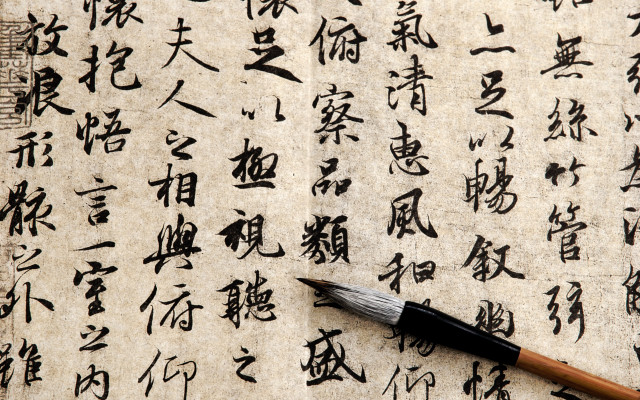 無絲竹管弦之
亦足以暢敘幽情
氣清惠風和暢仰
俯察品類之盛
懷足以極視聽之
夫人之相與俯仰
懷抱悟言一室之內
放浪形骸之外雖